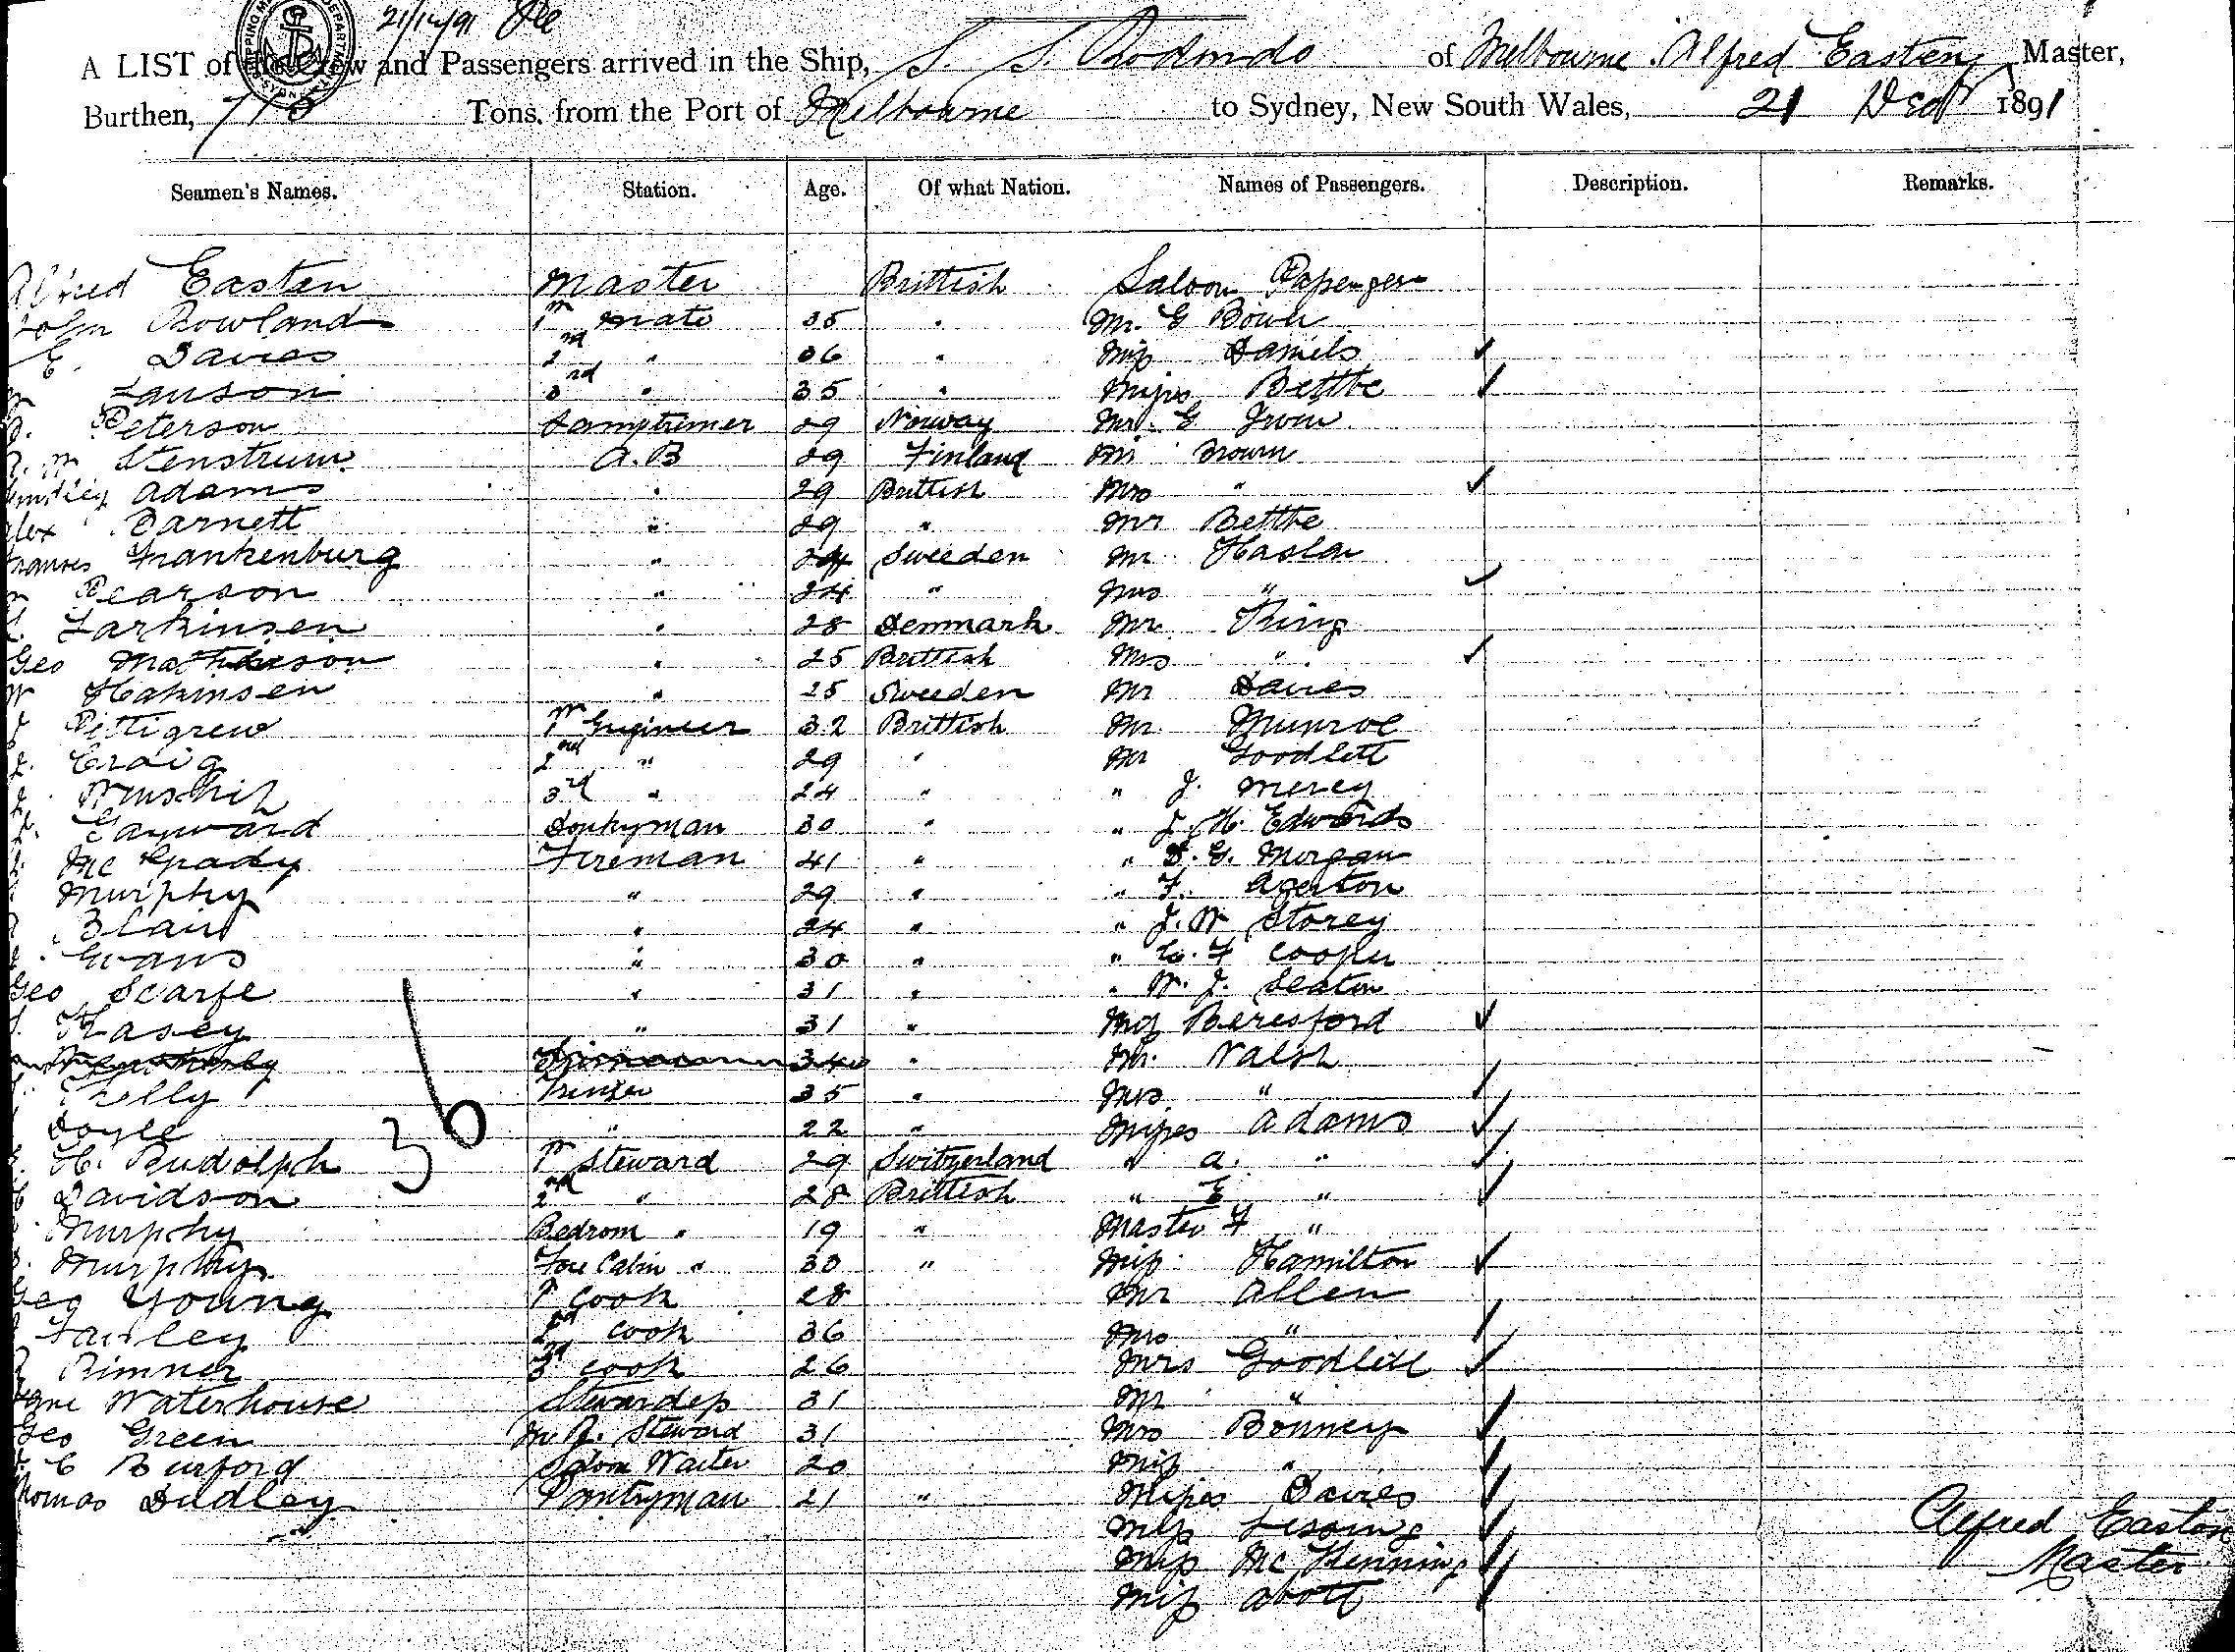 21/12/91
A LIST of the Crew and Passengers arrived in the Ship, S. S. Rodondo of Melbourne Alfred Easten, Master,
Burthen, 715 Tons. from the Port of Melbourne to Sydney, New South Wales, 21 Decr 1891
Seamen's Names. Station. Age. Of what Nation. Names of Passengers. Description. Remarks.
Alfred Easten Master Brittish Saloon Passengers
John Rowland 1st mate 35 " Mr. G Bower
E. Davies 2nd " 36 " Miss Daniels
Lanson 3rd " 35 " Misses Betthe
Peterson Lamptrimer 29 Norway Mr. G Irwin
Stenstrum A.B 29 Finland Mr Brown
Adams " 29 Brittish Mrs "
Alex Barnett " 29 " Mr Betthe
Frankenburg " 24 Sweeden Mr Haslam
Pearson " 24 " Mrs "
Larkinsen " 28 Denmark Mr King
Geo Mathieson " 25 Brittish Mrs "
W Hakinsen " 25 Sweeden Mr Davies
Pettigrew 1st Engineer 32 Brittish Mr Munroe
Craig 2nd " 29 " Mr Goodlett
3rd " 24 " " J. Mercy
Gayward Donkyman 30 " " J. H. Edwards
Mc Grady Fireman 41 " " D. G. Morgan
Murphy " 29 " " F. Agerton
Blair " 24 " " J. W Storey
Evans " 30 " " C. F Cooper
Geo Scarfe " 31 " " W. J. Seaton
Kasey " 31 " Miss Beresford
34 " Mr. Walsh
Kelly Trimer 35 " Mrs "
Doyle " 22 " Misses Adams
H. Rudolph 1st Steward 29 Switzerland " A. "
Davidson 2nd " 28 Brittish " E "
Murphy Bedrom " 19 " Master F "
Murphy Fore Cabin " 30 " Miss Hamilton
Geo Young 1st Cook 28 Mr Allen
Farley 2nd Cook 36 Mrs "
Rimner 3rd Cook 26 Mrs Goodlett
Jane Waterhouse Stewardess 31 Mr "
Geo Green M. R. Steward 31 Mrs Bonney
C Burford Saloon Waiter 20 Miss "
Thomas Dudley Pantryman 21 " Misses Davies
Miss
Miss Mc Kenning
Miss Abott
36
Alfred Easton
Master